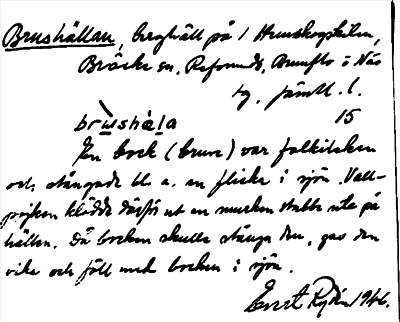 Brushällan, berghäll på / Hemskogskilen,
Bräcke sn, Refsunds, Brunflo o Näs
tg. Jämtl. l.
15
brùshàla
En bock (bruse) var folkilsken
och stångade bl. a. en flicka i sjön. Vall-
pojken klädde därför ut en murken stubbe ute på
hällen. Då bocken skulle stånga den, gav den
vika och föll med bocken i sjön.
Evert Rydin 1946.